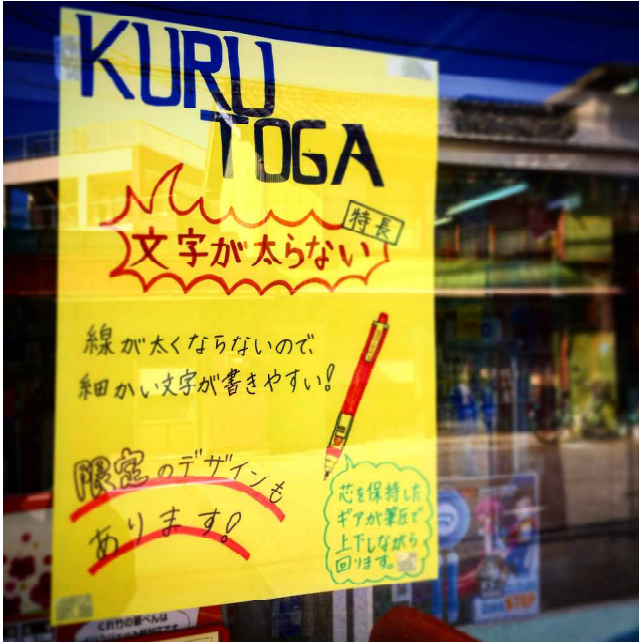 KURU
TOGA
特長
文字が太らない
線が太くならないので、
細かい文字が書きやすい!
限定のデザインも
あります!
芯を保持した
ギアが筆圧で
上下しながら
回ります。
くれ竹の筆ぺん
STEP